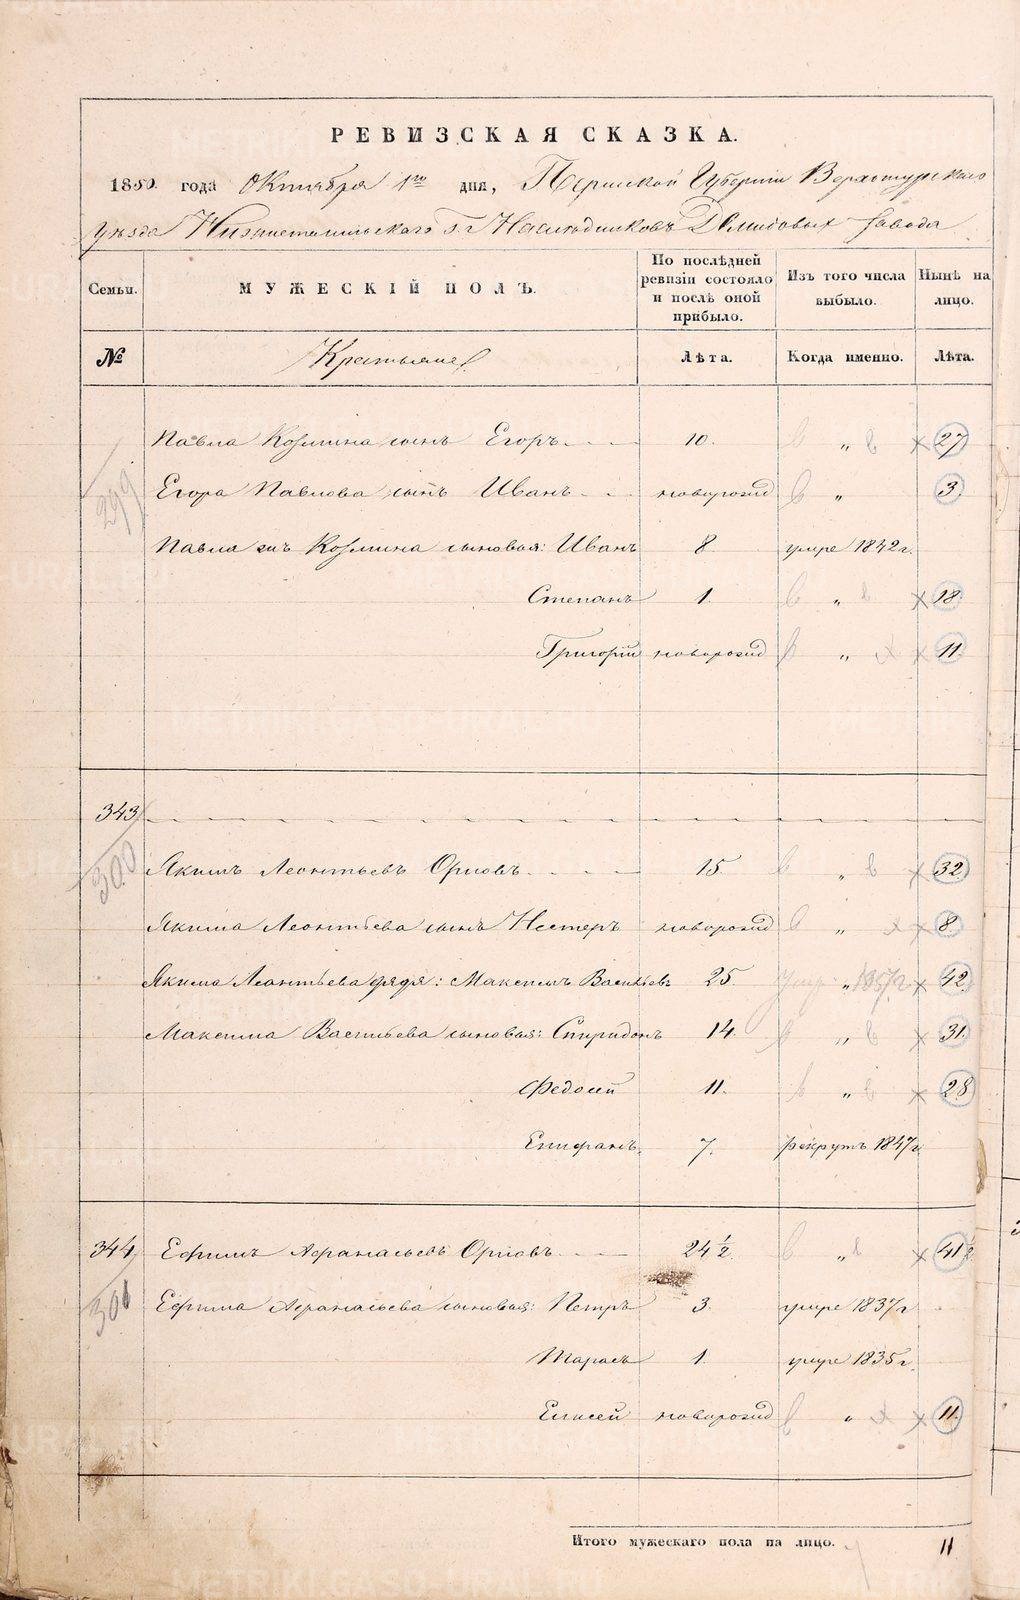 РЕВИЗСКАЯ СКАЗКА.
1850. года Октября 1го дня, Пермской Губерніи Верхотурскаго
уѣзда Нижнетагильскаго Гг Наслѣдниковъ Демидовыхъ завода
Семьи. МУЖЕСКІЙ ПОЛЪ. По послѣдней ревизіи состояло и послѣ оной прибыло. Изъ того числа выбыло. Нынѣ на лицо.
№ Крестьяне Лѣта. Когда именно. Лѣта.
299 Павла Козмина сынъ Егоръ 10. " 27
Егора Павлова сынъ Иванъ новорожд " 3
Павла жъ Козмина сыновья: Иванъ 8 умре 1842 г.
Степанъ 1. " 18
Григорій новорожд " 11.
343
300 Якимъ Леонтьевъ Орловъ 15. " 32
Якима Леонтьева сынъ Нестеръ новорожд " 8
Якима Леонтьева дядя: Максимъ Васильевъ 25. " умр 1857 г 42
Максима Васильева сыновья: Спиридонъ 14. " 31.
Федосей 11. " 28
Епифанъ. 7. рекрутъ 1847 г.
344 Ефимъ Афанасьевъ Орловъ 24 1/2. " 41 1/2
301 Ефима Афанасьева сыновья: Петръ 3. умре 1837 г
Тарасъ 1. умре 1835 г.
Елисей новорожд " 11.
Итого мужескаго пола на лицо. 11
METRIKI.GASO-URAL.RU